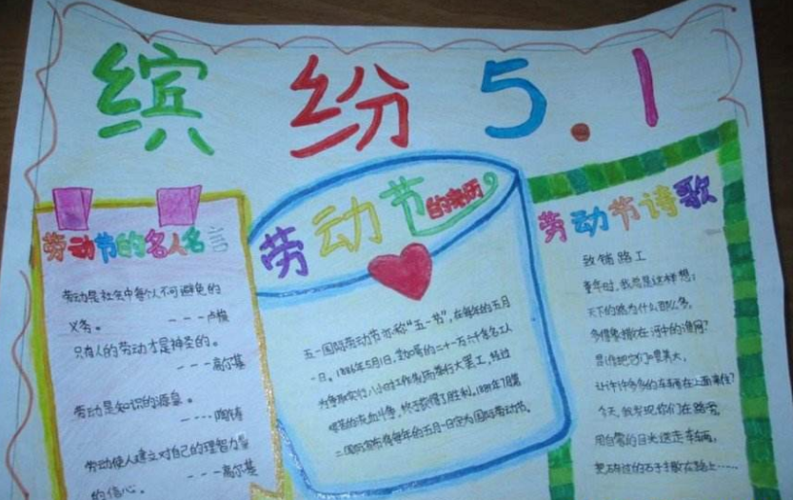 缤纷5.1
劳动节的名人名言
劳动是社会中每个人不可避免的
义务。 ---卢梭
只有人的劳动才是神圣的。
---高尔基
劳动是知识的源泉。
---陶铸
劳动使人建立对自己的理智力量
的信心。 ---高尔基
劳动节的来历
五一国际劳动节亦称“五一节”,在每年的五月
一日。1886年5月1日,芝加哥的二十一万六千余名工人
为争取实行八小时工作制而举行大罢工,经过
的流血斗争,终于获得了胜利。1889年7月第
二国际宣布将每年的五月一日定为国际劳动节。
劳动节诗歌
致铺路工
童年时,我总是这样想:
天下的路为什么那么多,
多得像撒在河中的渔网?
是谁把它们
让许许多多的车辆在上面
今天,我发现你们在路旁,
用自豪的目光送走车辆,
把石子撒在路上……